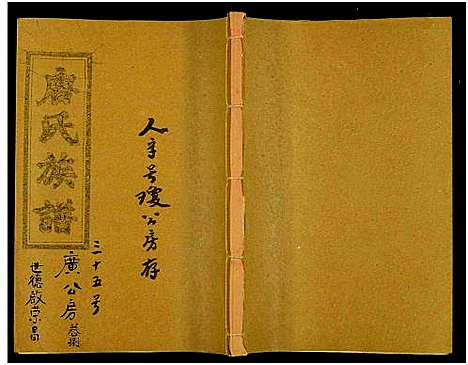 唐氏族譜
人字号瓊公房存
三十五号
廣公房卷捌
世德啟榮昌